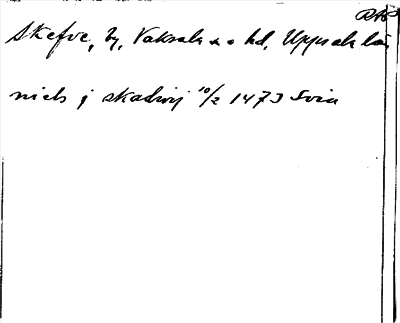 DMS
Skefve, by, Vaksala sn o hd, Uppsala län
niels j skadwij 10/2 1473 Svia